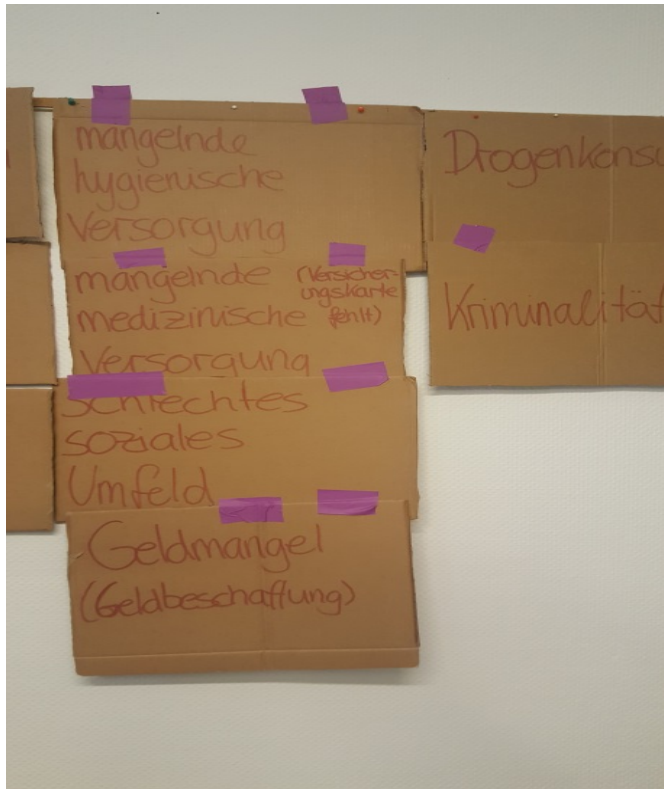 mangelnde
hygienische
Versorgung
mangelnde
medizinische
Versorgung
(Versicher-
ungskarte
fehlt)
schlechtes
soziales
Umfeld
Geldmangel
(Geldbeschaffung)
Kriminalität